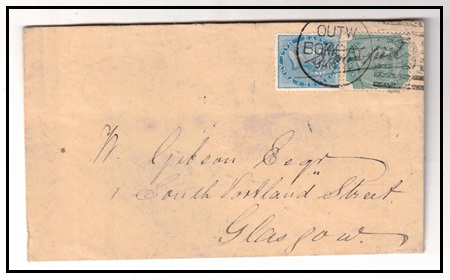 OUTW
BOMBAY
JAN
W. Gibson Esqr
1 South Portland Street
Glasgow.